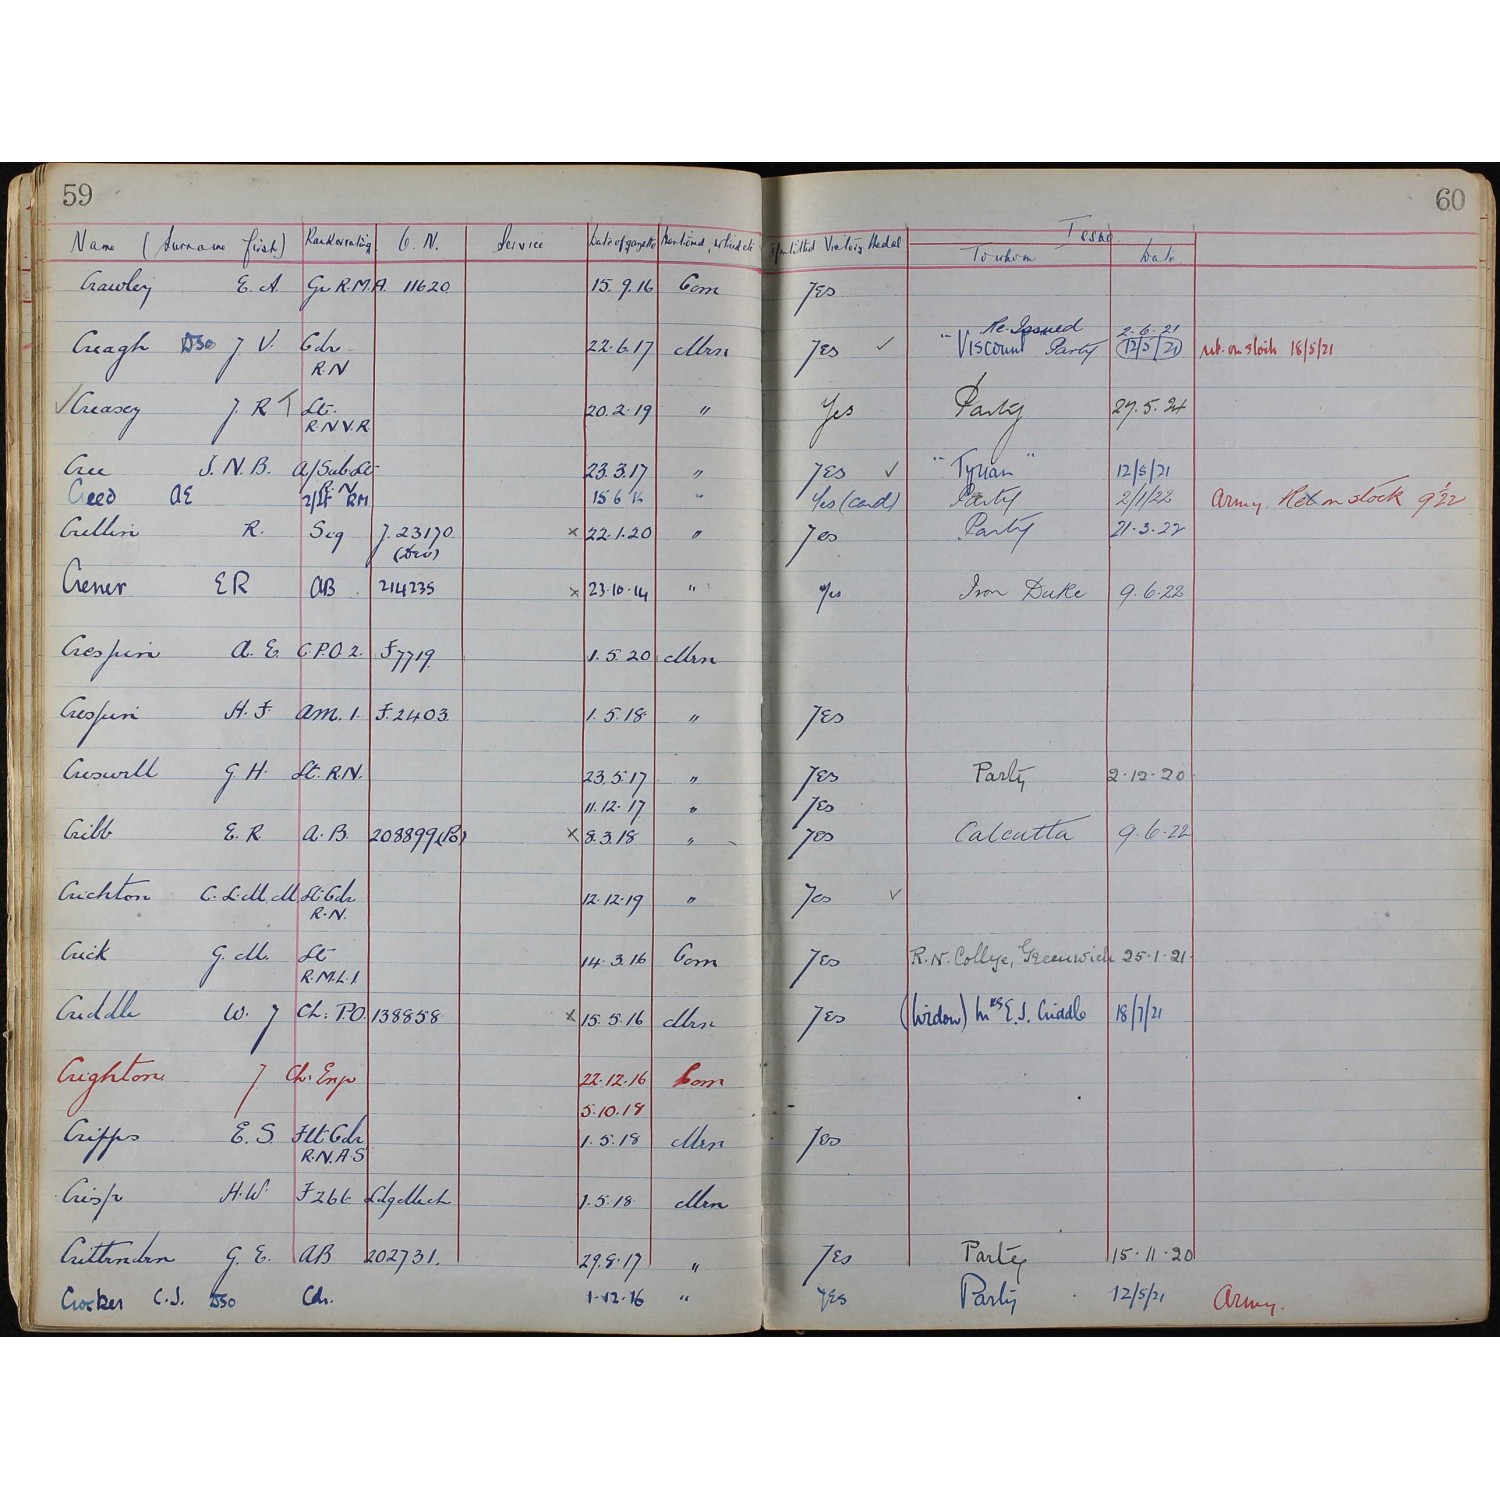 59
60
Name (Surname first) Rank or rating O.N. Service Date of gazette Mentioned, noticed etc Entitled Victory Medal Issue
To whom Date
Crawley E. A. Gr R.M.A. 11620 15.9.16 Com Yes
Re-Issued 2.6.21
Creagh DSO J V. Cdr 22.6.17 Mn Yes ✓ "Viscount Party 12/5/21 ret. on stock 18/5/21
R.N
✓ Creasey J. R T Lt. 20.2.19 " Yes Party 27.5.24
R.N.V.R
Cree J. N. B. A/Sub Lt 23.3.17 " Yes ✓ "Tyrian" 12/5/21
R.N
Creed AE 2/Lt RM 15 6 16 " Yes (card) Party 2/1/22 Army. Ret on stock 9/1/22
Crellin R. Sig J. 23170 × 22.1.20 " Yes Party 21.3.22
(Dev)
Crener ER AB 214235 × 23.10.14 " Yes Iron Duke 9.6.22
Crespin A. E. C.P.O 2. F7719. 1.5.20 Mn
Crespin H. F. AM. 1. F.2403. 1.5.18 " Yes
Creswell G H. Lt. R.N. 23.5.17 " Yes Party 2.12.20
11.12.17 " Yes
Cribb E. R A.B. 208899 (Po) × 8.3.18 " Yes Calcutta 9.6.22
Crichton C. L. M. M Lt Cdr 12.12.19 " Yes ✓
R.N.
Crick G. M. Lt 14.3.16 Com Yes R.N. College, Greenwich 25.1.21
R.M.L.I.
Criddle W. J Ch: P.O. 138858 × 15.5.16 Mn Yes (Widow) Mrs E. J. Criddle 18/7/21
Crighton J Ch: Engr 22.12.16 Com
5.10.18
Cripps E. S. Flt Cdr 1.5.18 Mn Yes
R.N.A.S
Crisp H. W. F266 Ldg Mech 1.5.18 Mn
Crittenden G. E. AB 202731. 29.8.17 " Yes Party 15.11.20
Crocker C. J. DSO Cdr. 1.12.16 " Yes Party 12/5/21 Army.